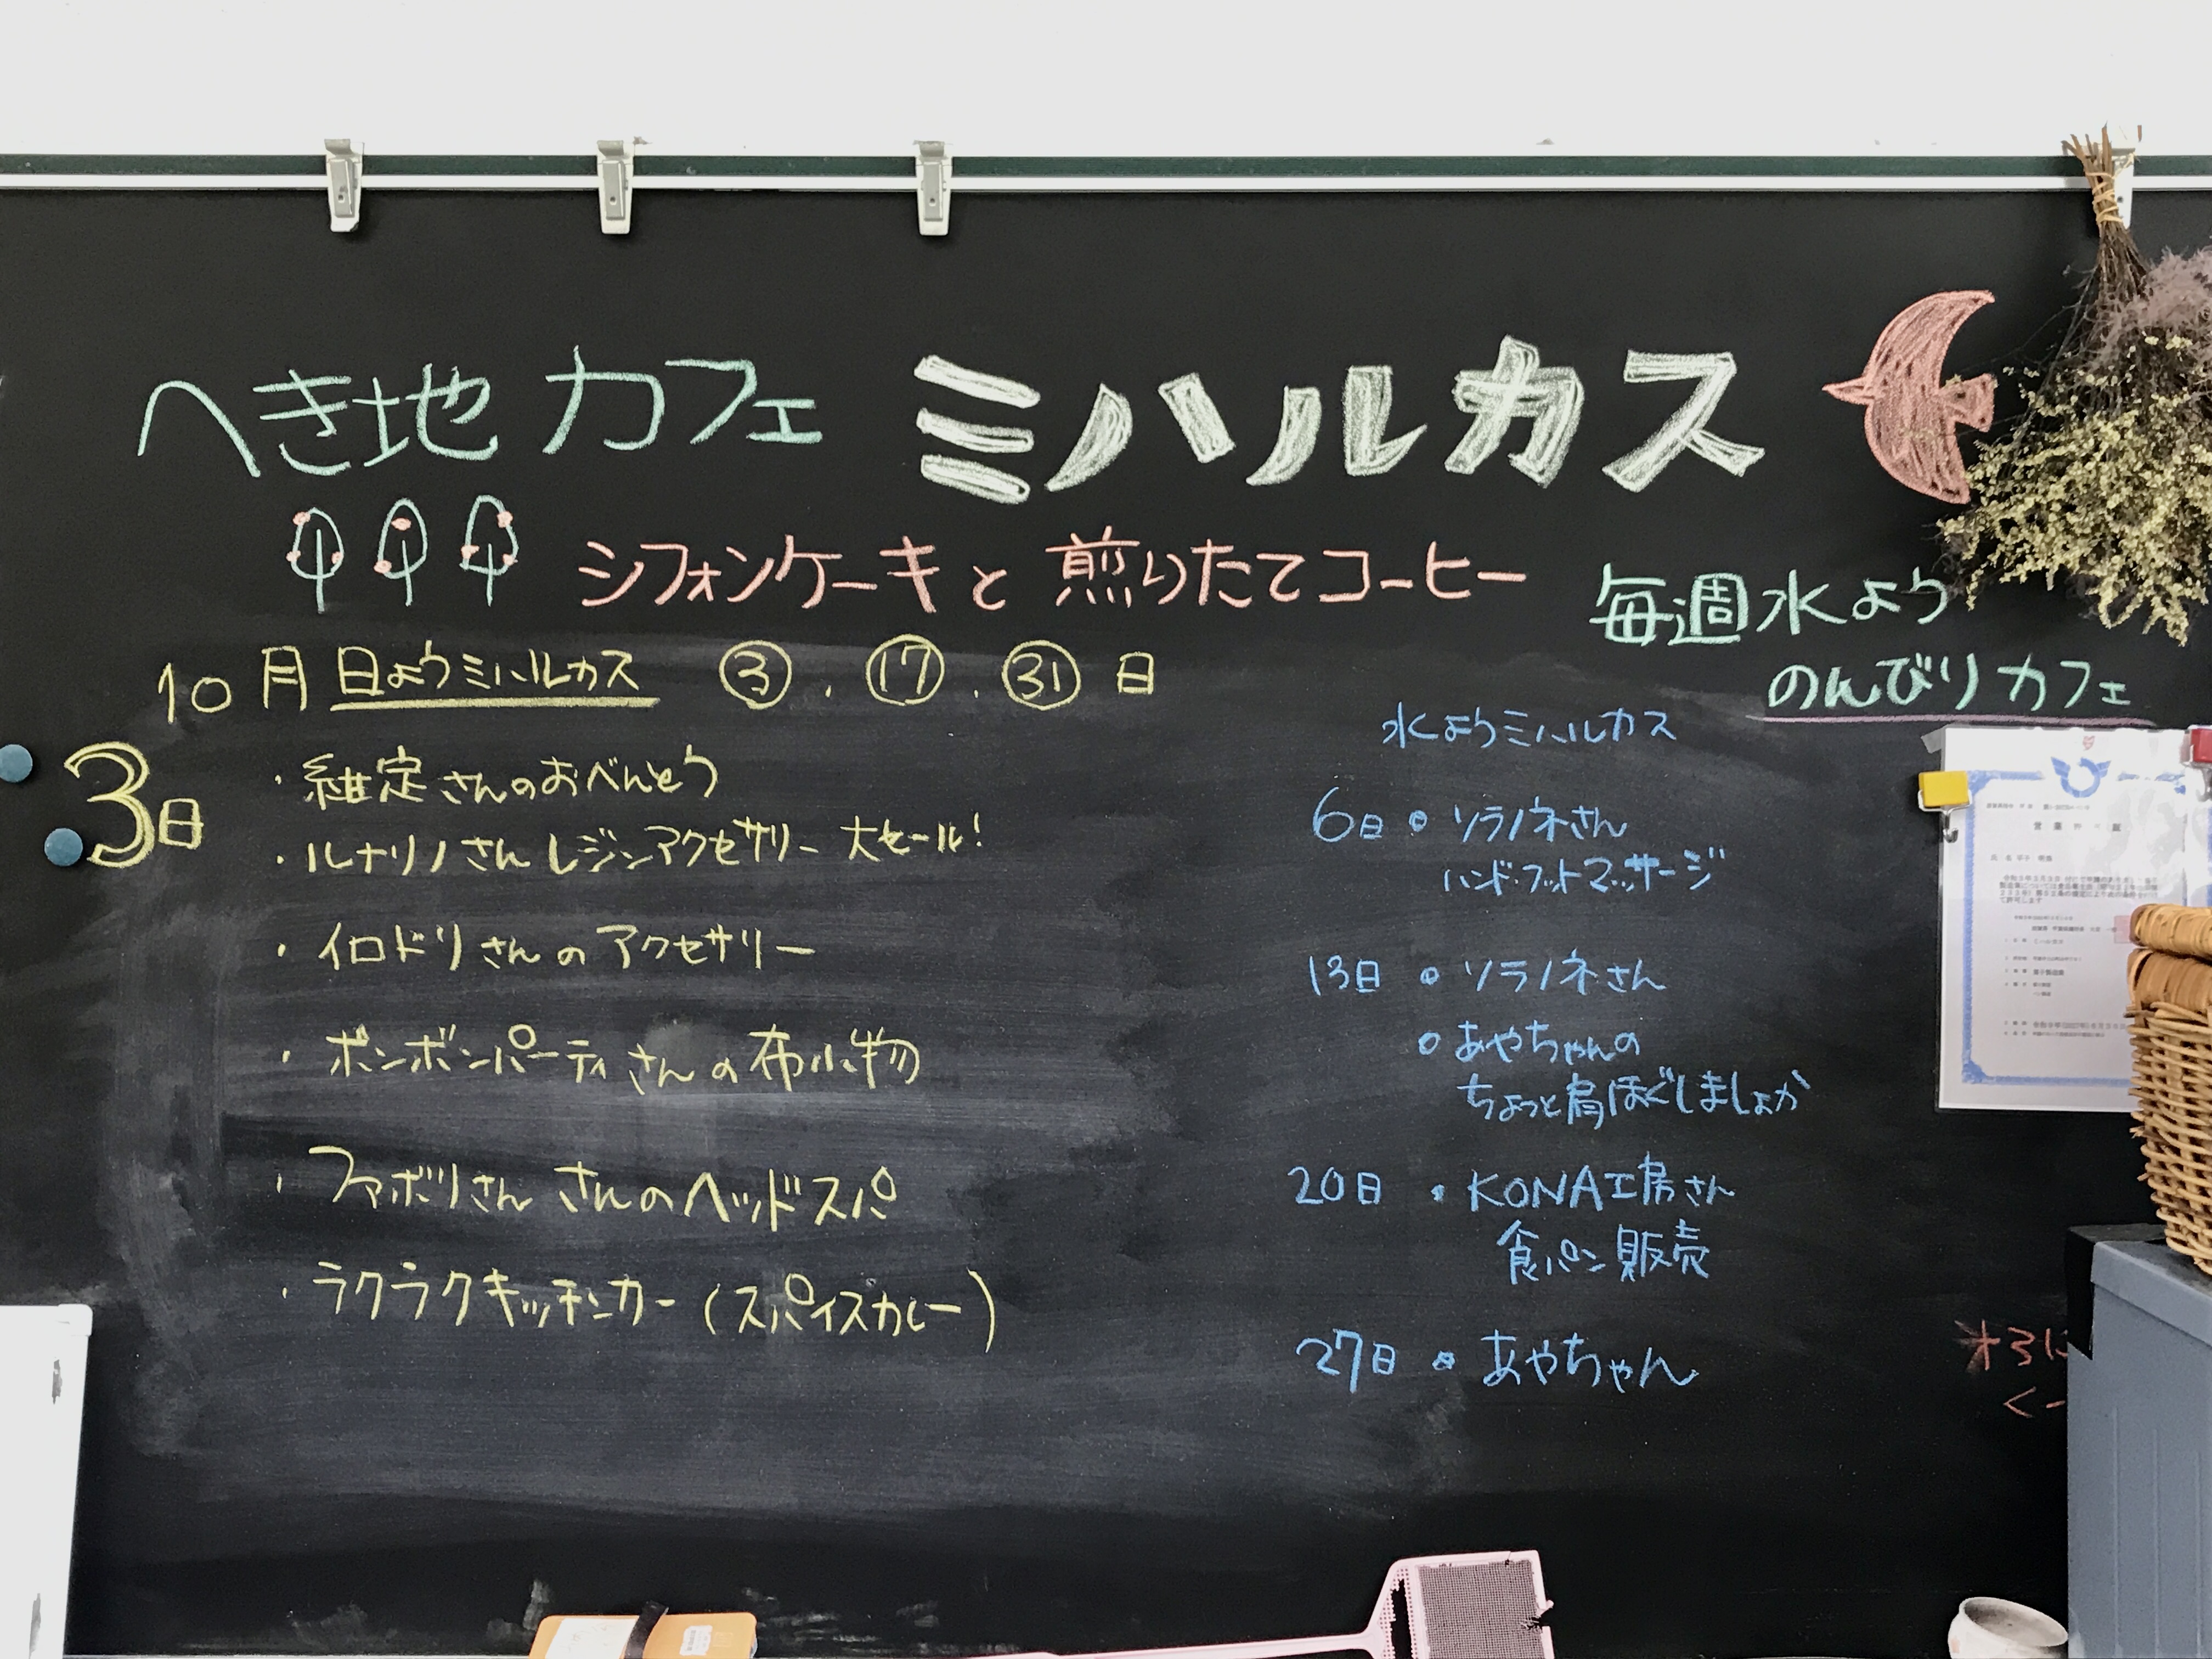 へき地 カフェ ミハルカス
シフォンケーキと 煎りたてコーヒー
毎週水よう
のんびりカフェ
10月 日ようミハルカス ③.⑰.㉛日
3日
・維定さんのおべんとう
・ルナリノさんレジンアクセサリー 大セール!
・イロドリさんのアクセサリー
・ボンボンパーティさんの布小物
・ファボリさん さんのヘッドスパ
・ラクラクキッチンカー(スパイスカレー)
水ようミハルカス
6日 ・ソラノネさん
ハンド・フットマッサージ
13日 ・ソラノネさん
・あやちゃんの
ちょっと肩ほぐしましょか
20日 ・KONA工房さん
食パン販売
27日 ・あやちゃん